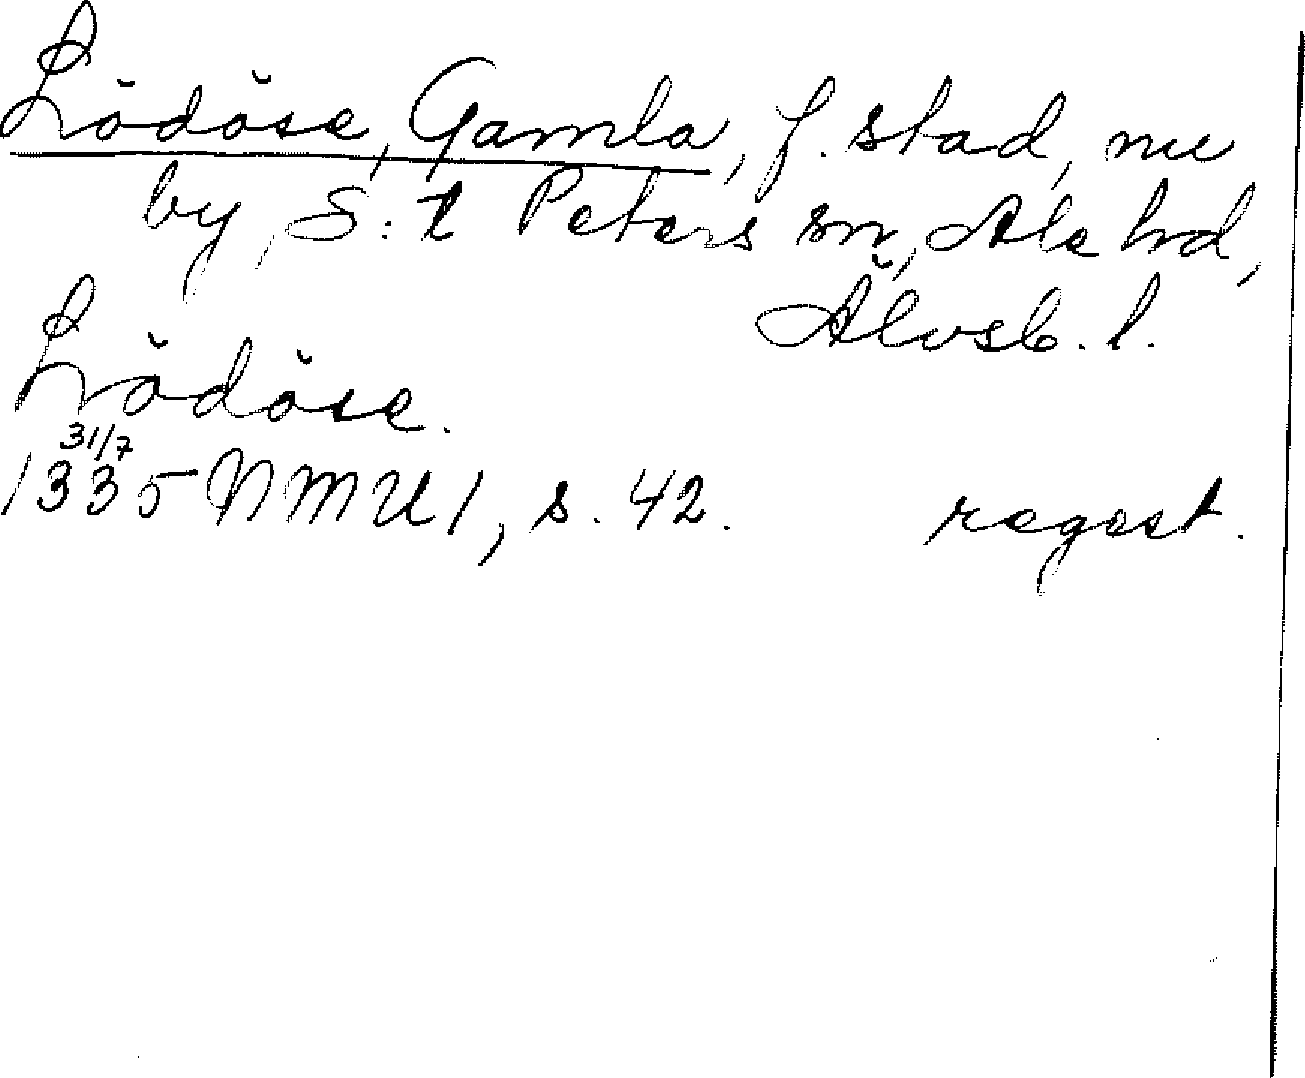 Lödöse, Gamla, f. stad, nu
by, S:t Peters sn, Ale hd,
Älvsb. l.
Lödöse.
31/7
1335 NMU 1, s. 42. regest.